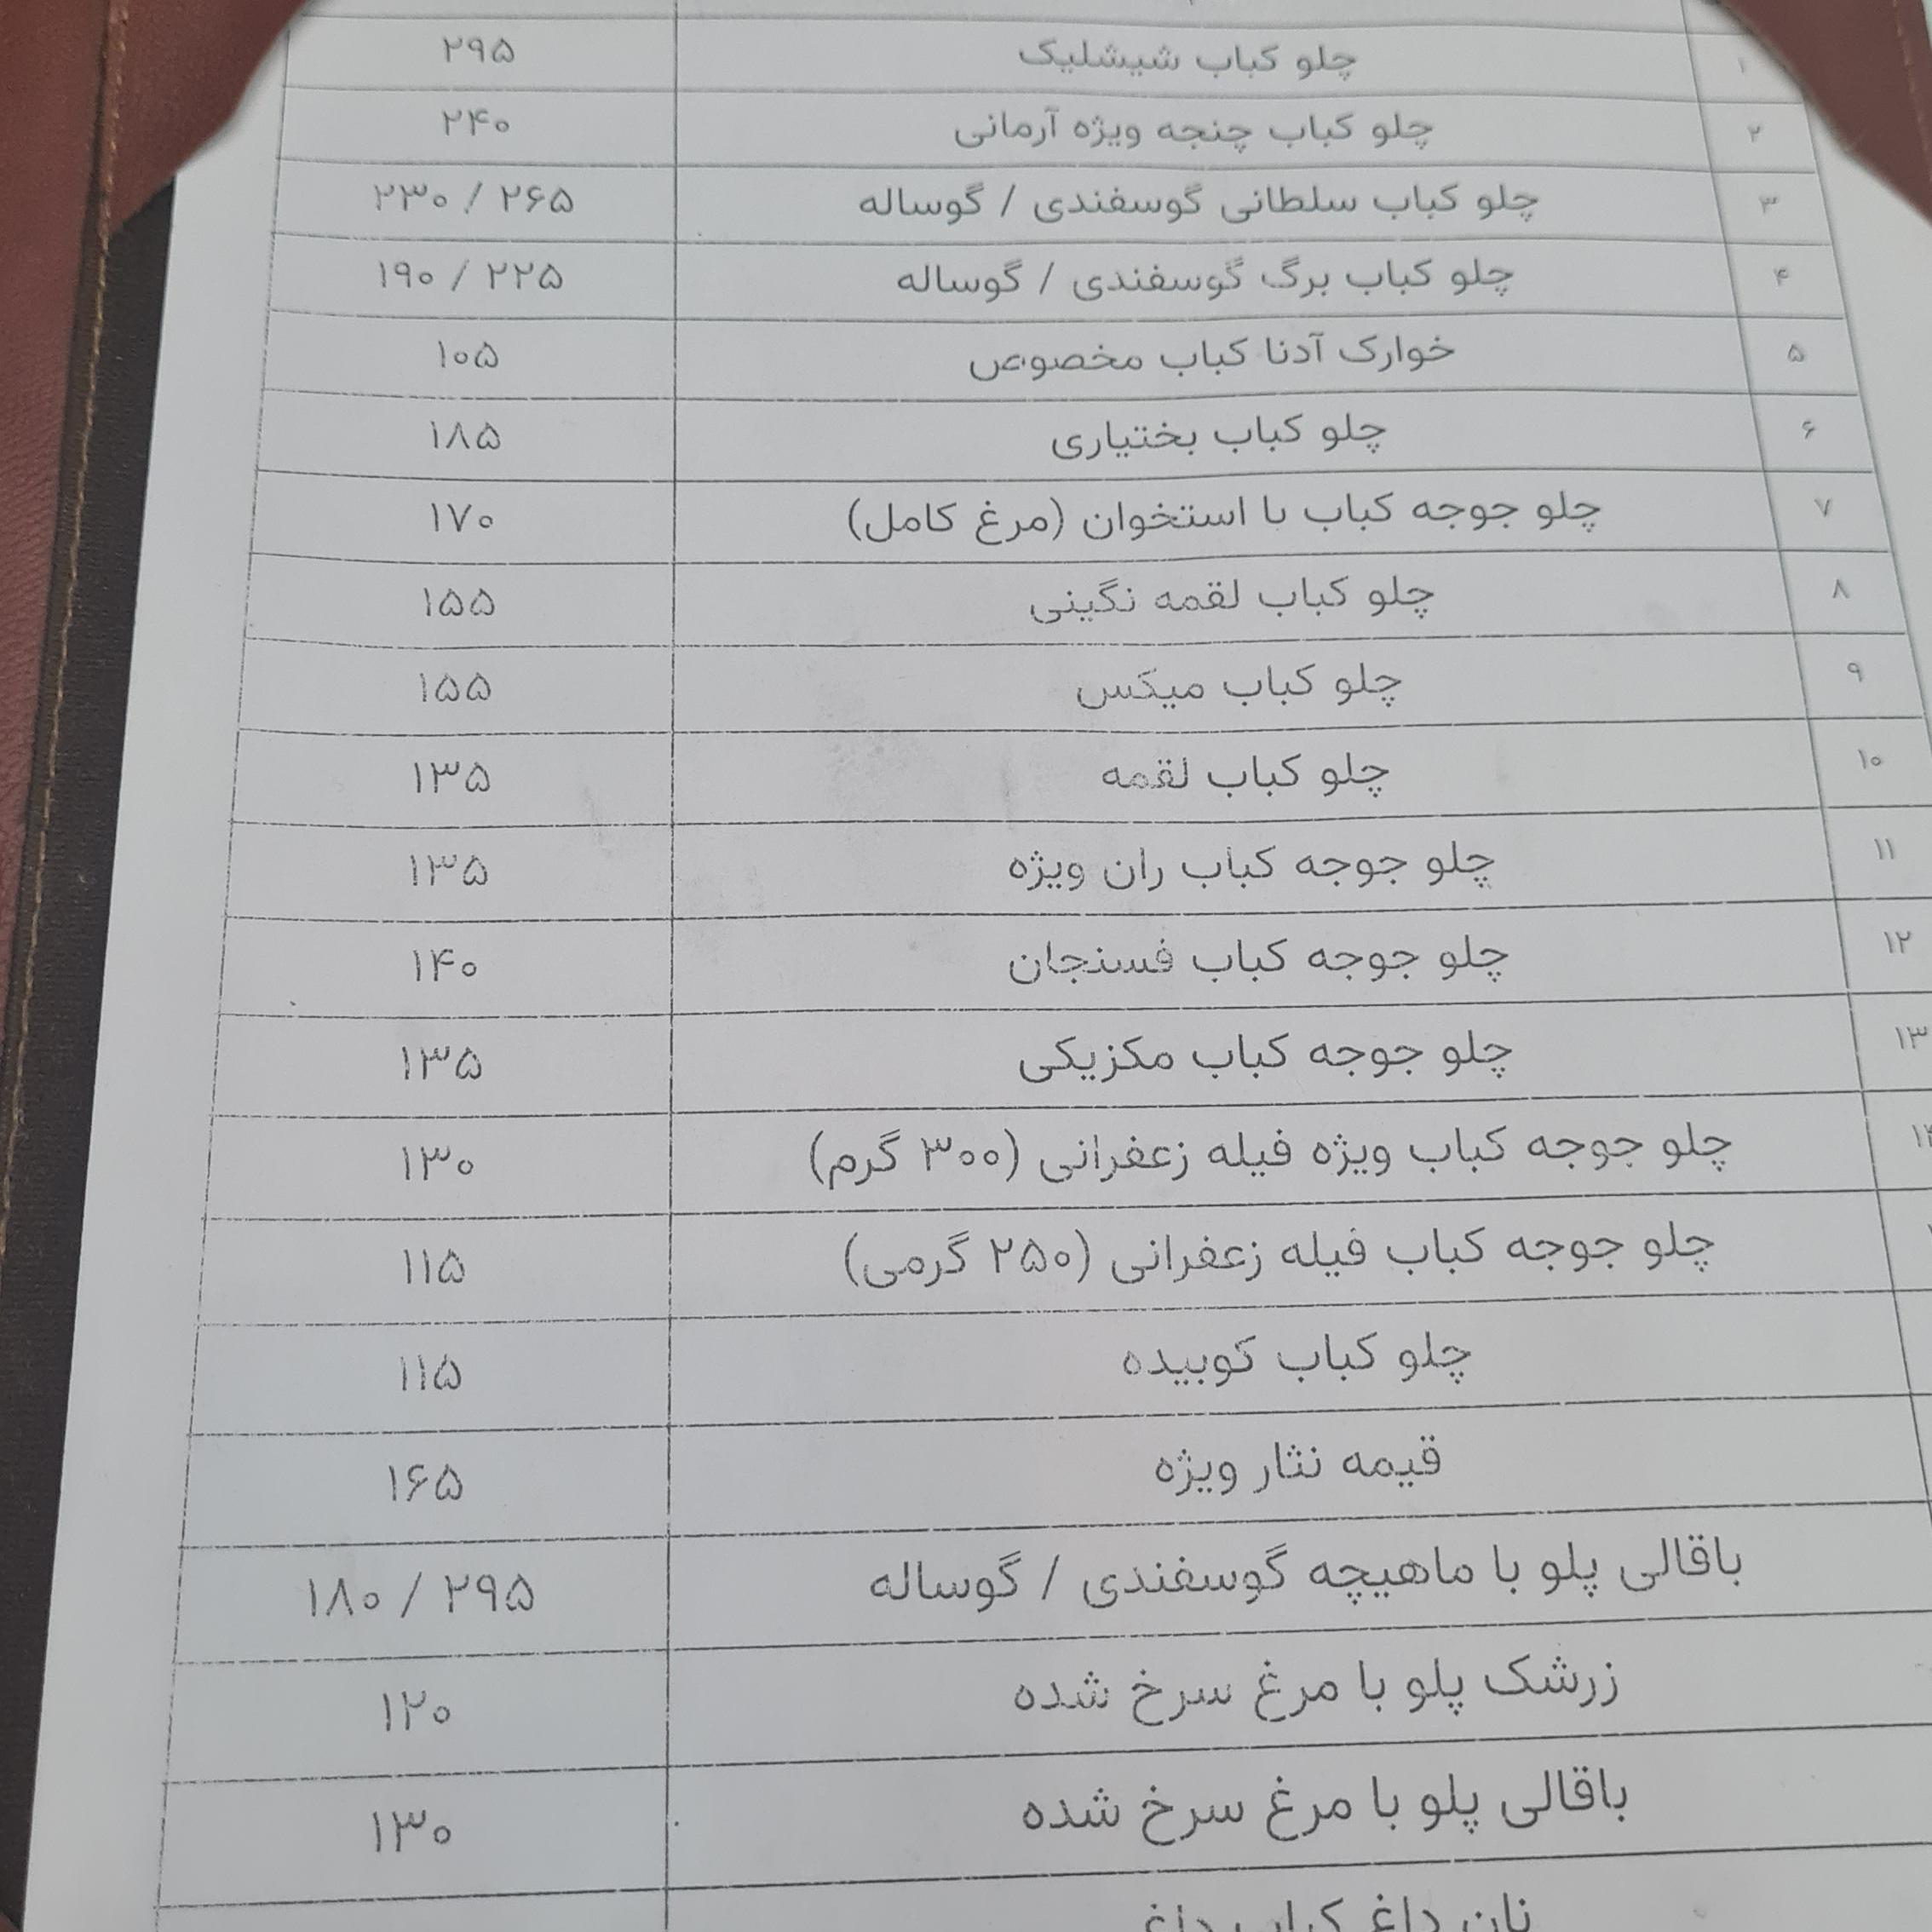 ۱ چلو کباب شیشلیک ۲۹۵
۲ چلو کباب چنجه ویژه آرمانی ۲۴۰
۳ چلو کباب سلطانی گوسفندی / گوساله ۲۶۵ / ۲۳۰
۴ چلو کباب برگ گوسفندی / گوساله ۲۲۵ / ۱۹۰
۵ خوارک آدنا کباب مخصوص ۱۰۵
۶ چلو کباب بختیاری ۱۸۵
۷ چلو جوجه کباب با استخوان (مرغ کامل) ۱۷۰
۸ چلو کباب لقمه نگینی ۱۵۵
۹ چلو کباب میکس ۱۵۵
۱۰ چلو کباب لقمه ۱۳۵
۱۱ چلو جوجه کباب ران ویژه ۱۳۵
۱۲ چلو جوجه کباب فسنجان ۱۴۰
۱۳ چلو جوجه کباب مکزیکی ۱۳۵
۱۴ چلو جوجه کباب ویژه فیله زعفرانی (۳۰۰ گرم) ۱۳۰
چلو جوجه کباب فیله زعفرانی (۲۵۰ گرمی) ۱۱۵
چلو کباب کوبیده ۱۱۵
قیمه نثار ویژه ۱۶۵
باقالی پلو با ماهیچه گوسفندی / گوساله ۲۹۵ / ۱۸۰
زرشک پلو با مرغ سرخ شده ۱۲۰
باقالی پلو با مرغ سرخ شده ۱۳۰
نان داغ کباب داغ